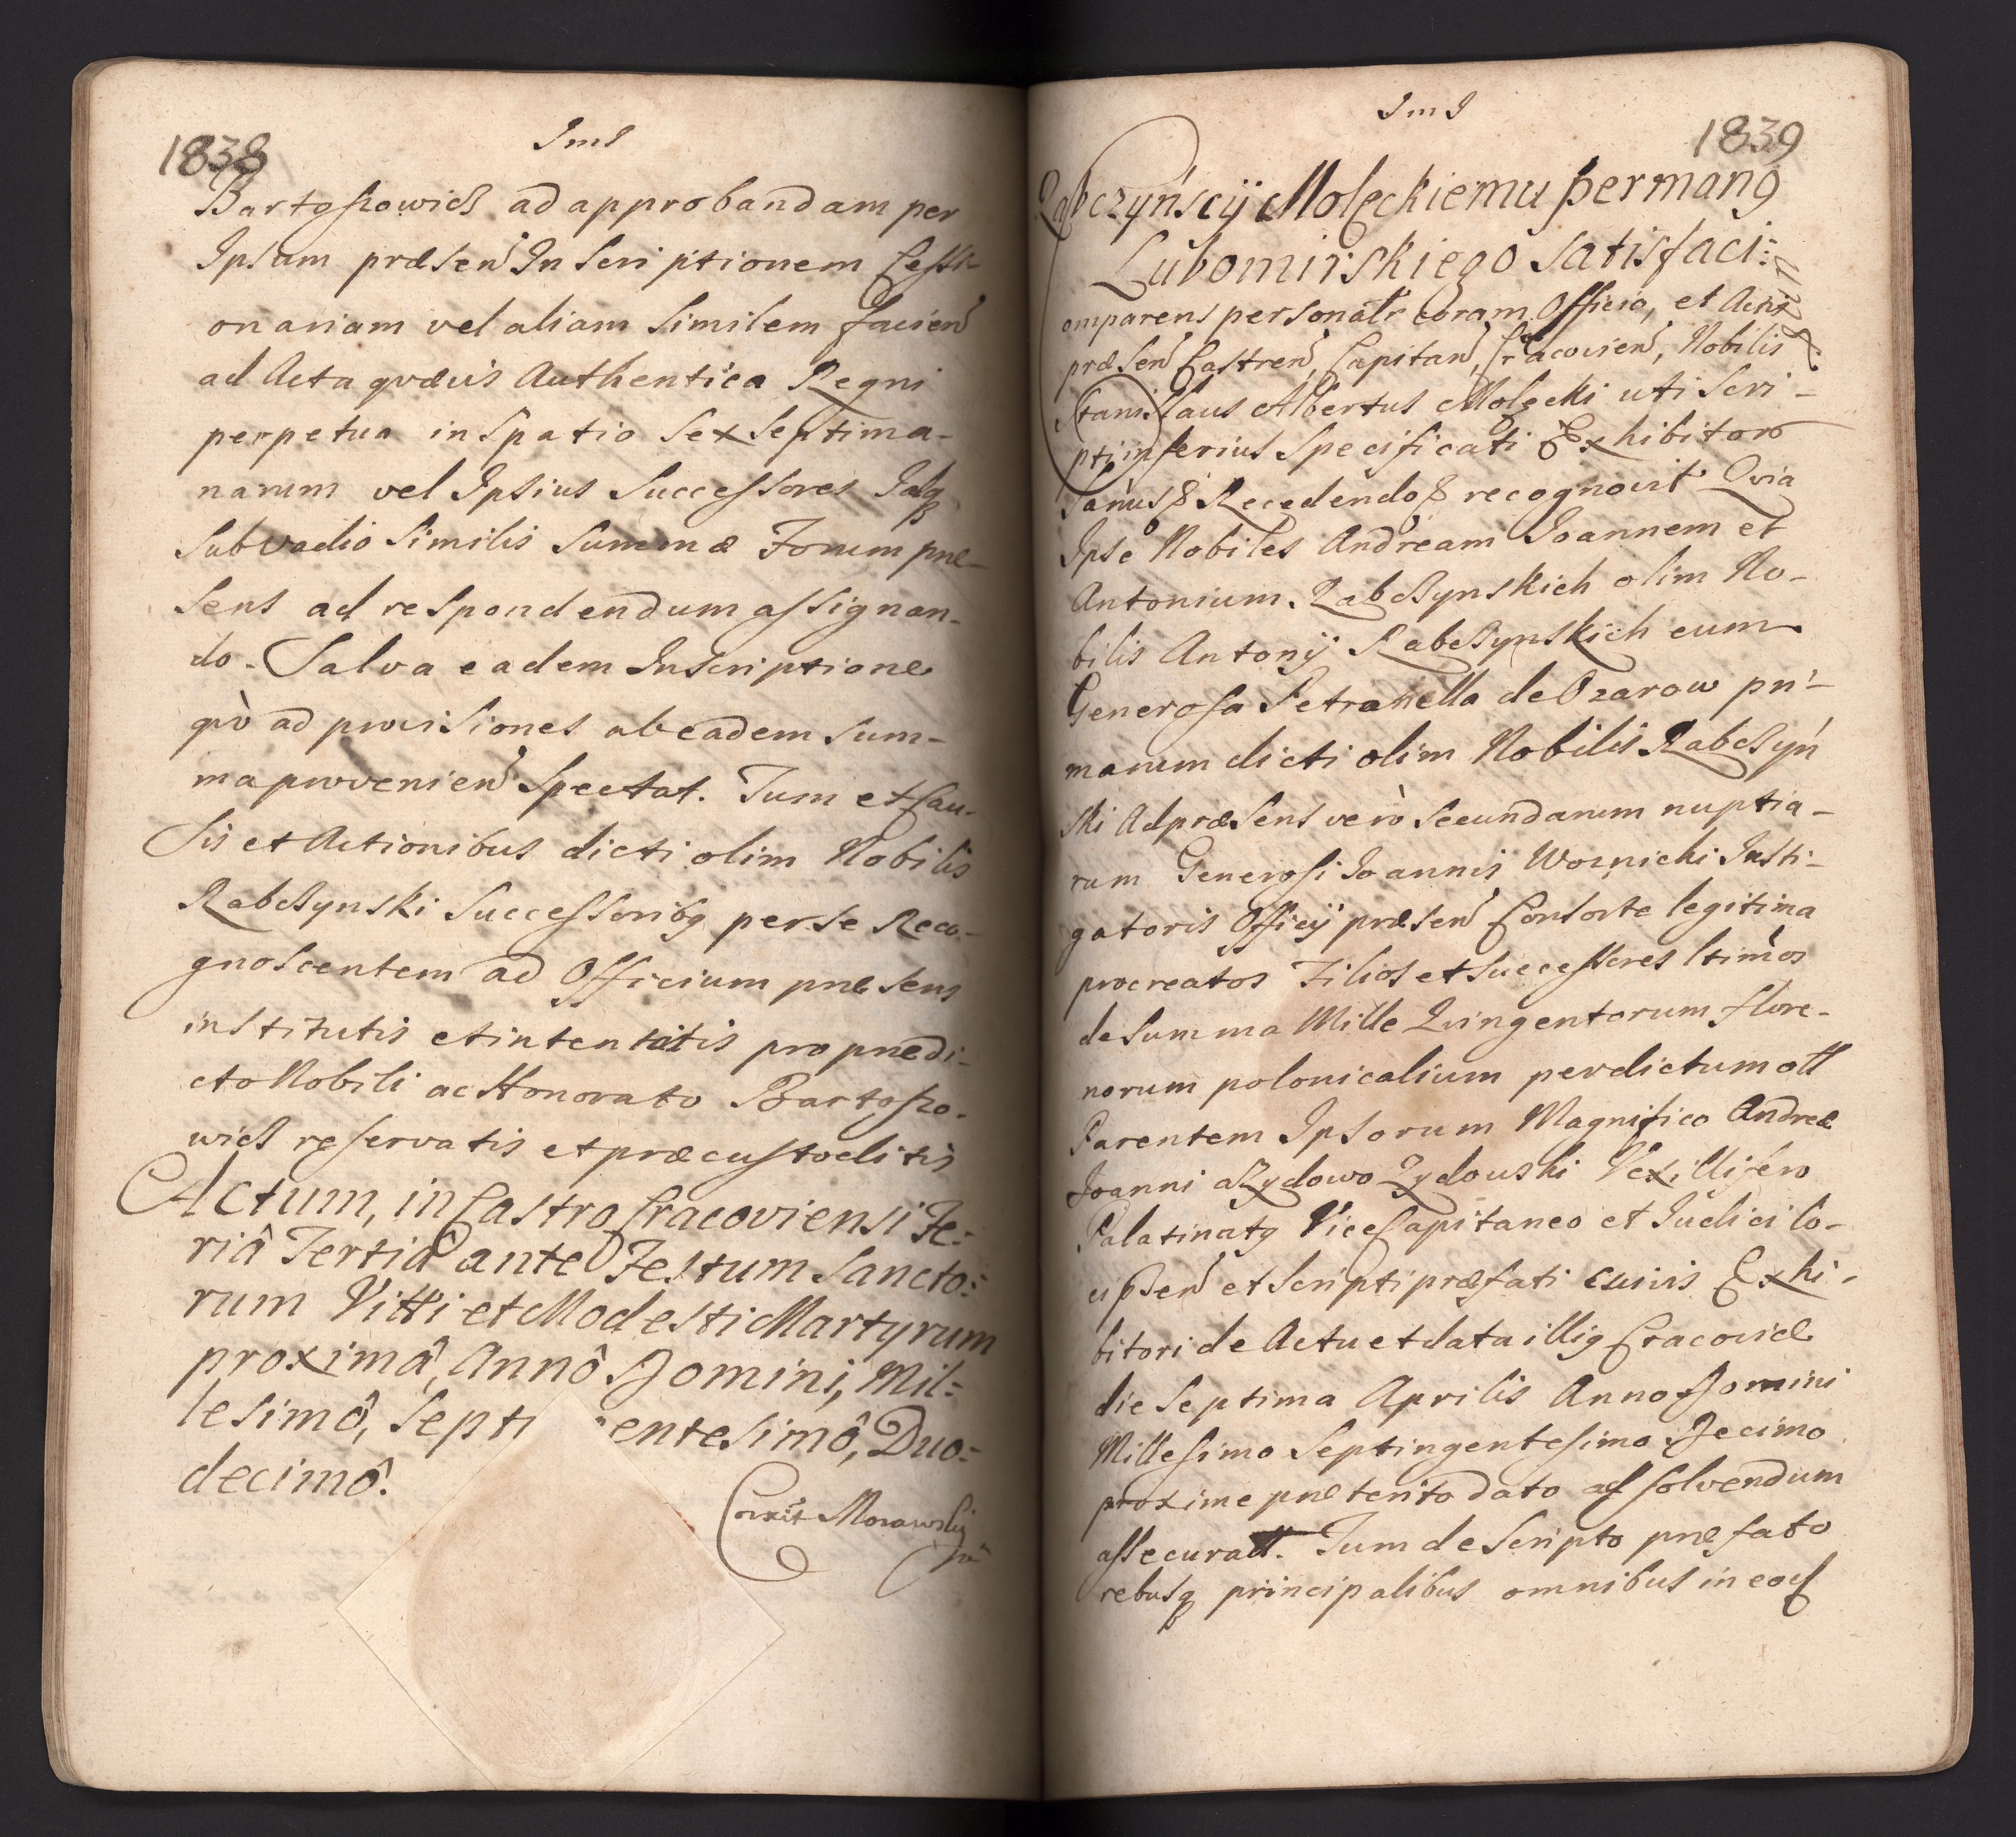 1838
JmJ
Bartoszowicz ad approbandam per
Ipsum præsen Inscriptionem Cessi-
onariam vel aliam similem facien
ad Acta quævis Authentica Regni
perpetua in Spatio Sex Septima-
narum vel Ipsius Successores Idq
sub vadio similis Summæ Forum præ-
sens ad respondendum assignan-
do. Salva eadem Inscriptione
qvò ad provisiones ab eadem Sum-
ma provenien Spectat. Tum et Cau-
sis et Actionibus dicti olim Nobilis
Rabczynski Successoribg per se Reco-
gnoscentem ad Officium præsens
institutis et intentatis pro prædi-
cto Nobili ac Honorato Bartoszo-
wicz reservatis et præcustoditis
Actum, in Castro Cracoviensi Fe:
riâ Tertiâ ante Festum Sancto:
rum Vitti et Modesti Martyrum
proximâ, Annô Domini, Mil:
lesimô, Septi entesimô, Duo:
decimô.
Morawski
JmJ
1839
Rabczyńscÿ Molęckiemu per mang
Lubomirskiego satisfaci:
omparens personalr Coram Officio, et Actis
præsen Castren, Capitan, Cracovien, Nobilis
Stanislaus Albertus Molęcki uti Scri-
pti inferius Specificati Exhibitor
Sanus & Recedendo & recognovit Qvia
Ipse Nobiles Andream Joannem et
Antonium Rabczynskich olim No-
bilis Antonÿ Rabczynskich cum
Generosa Petranella de Ozarow pri-
marum dicti olim Nobilis Rabczyń
ski Ad præsens verò secundarum nuptia-
rum Generosi Joannis Woznicki Insti-
gatoris Officÿ præsen Consorte legitima
procreatos Filios et Successores ltimos
de Summa Mille Qvingentorum flore-
norum polonicalium per dictum oll
Parentem Ipsorum Magnifico Andreæ
Joanni a Zydowo Zydowski Vexillifero
Palatinatg ViceCapitaneo et Judici Cô-
et Scripti præfati cuivis Exhi-
bitori de Actu et data illig Cracoviæ
die Septima Aprilis Anno Domini
Millesimo Septingentesimo Decimo
proxime præterito dato ad solvendum
assecurat. Tum de Scripto præfato
rebusq principalibus omnibus in eod